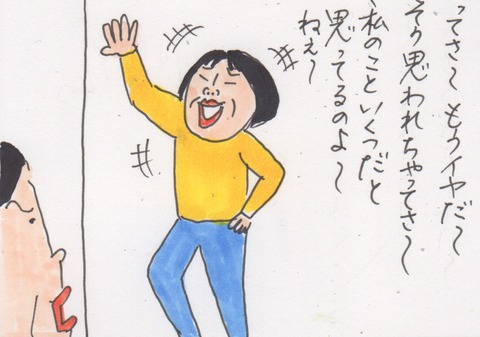 ってさ〜 もうイヤだ〜
そう思われちゃってさ〜
私のこといくつだと
思ってるのよ〜
ねぇ〜